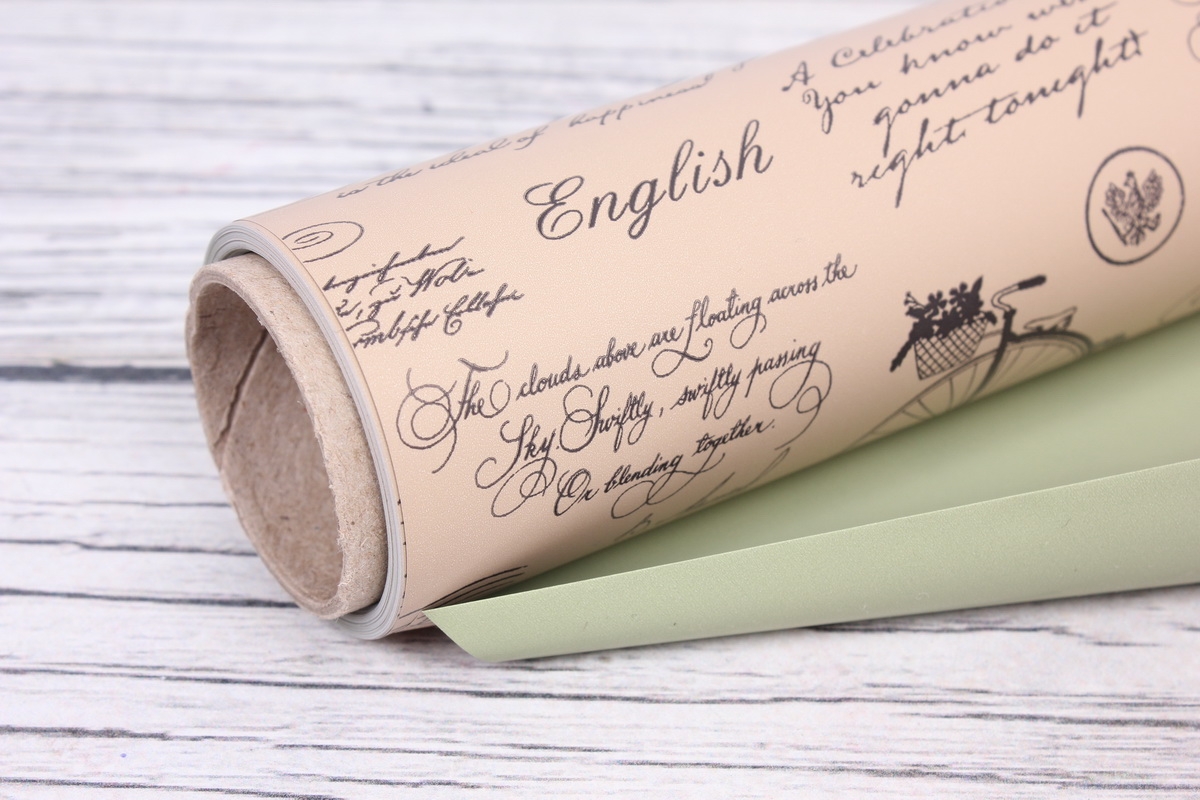 is the ideal of happiness
A Celebratio
You know
gonna do it
right tonight!
English
The clouds above are floating across the
Sky. Swiftly, swiftly passing
Or blending together.